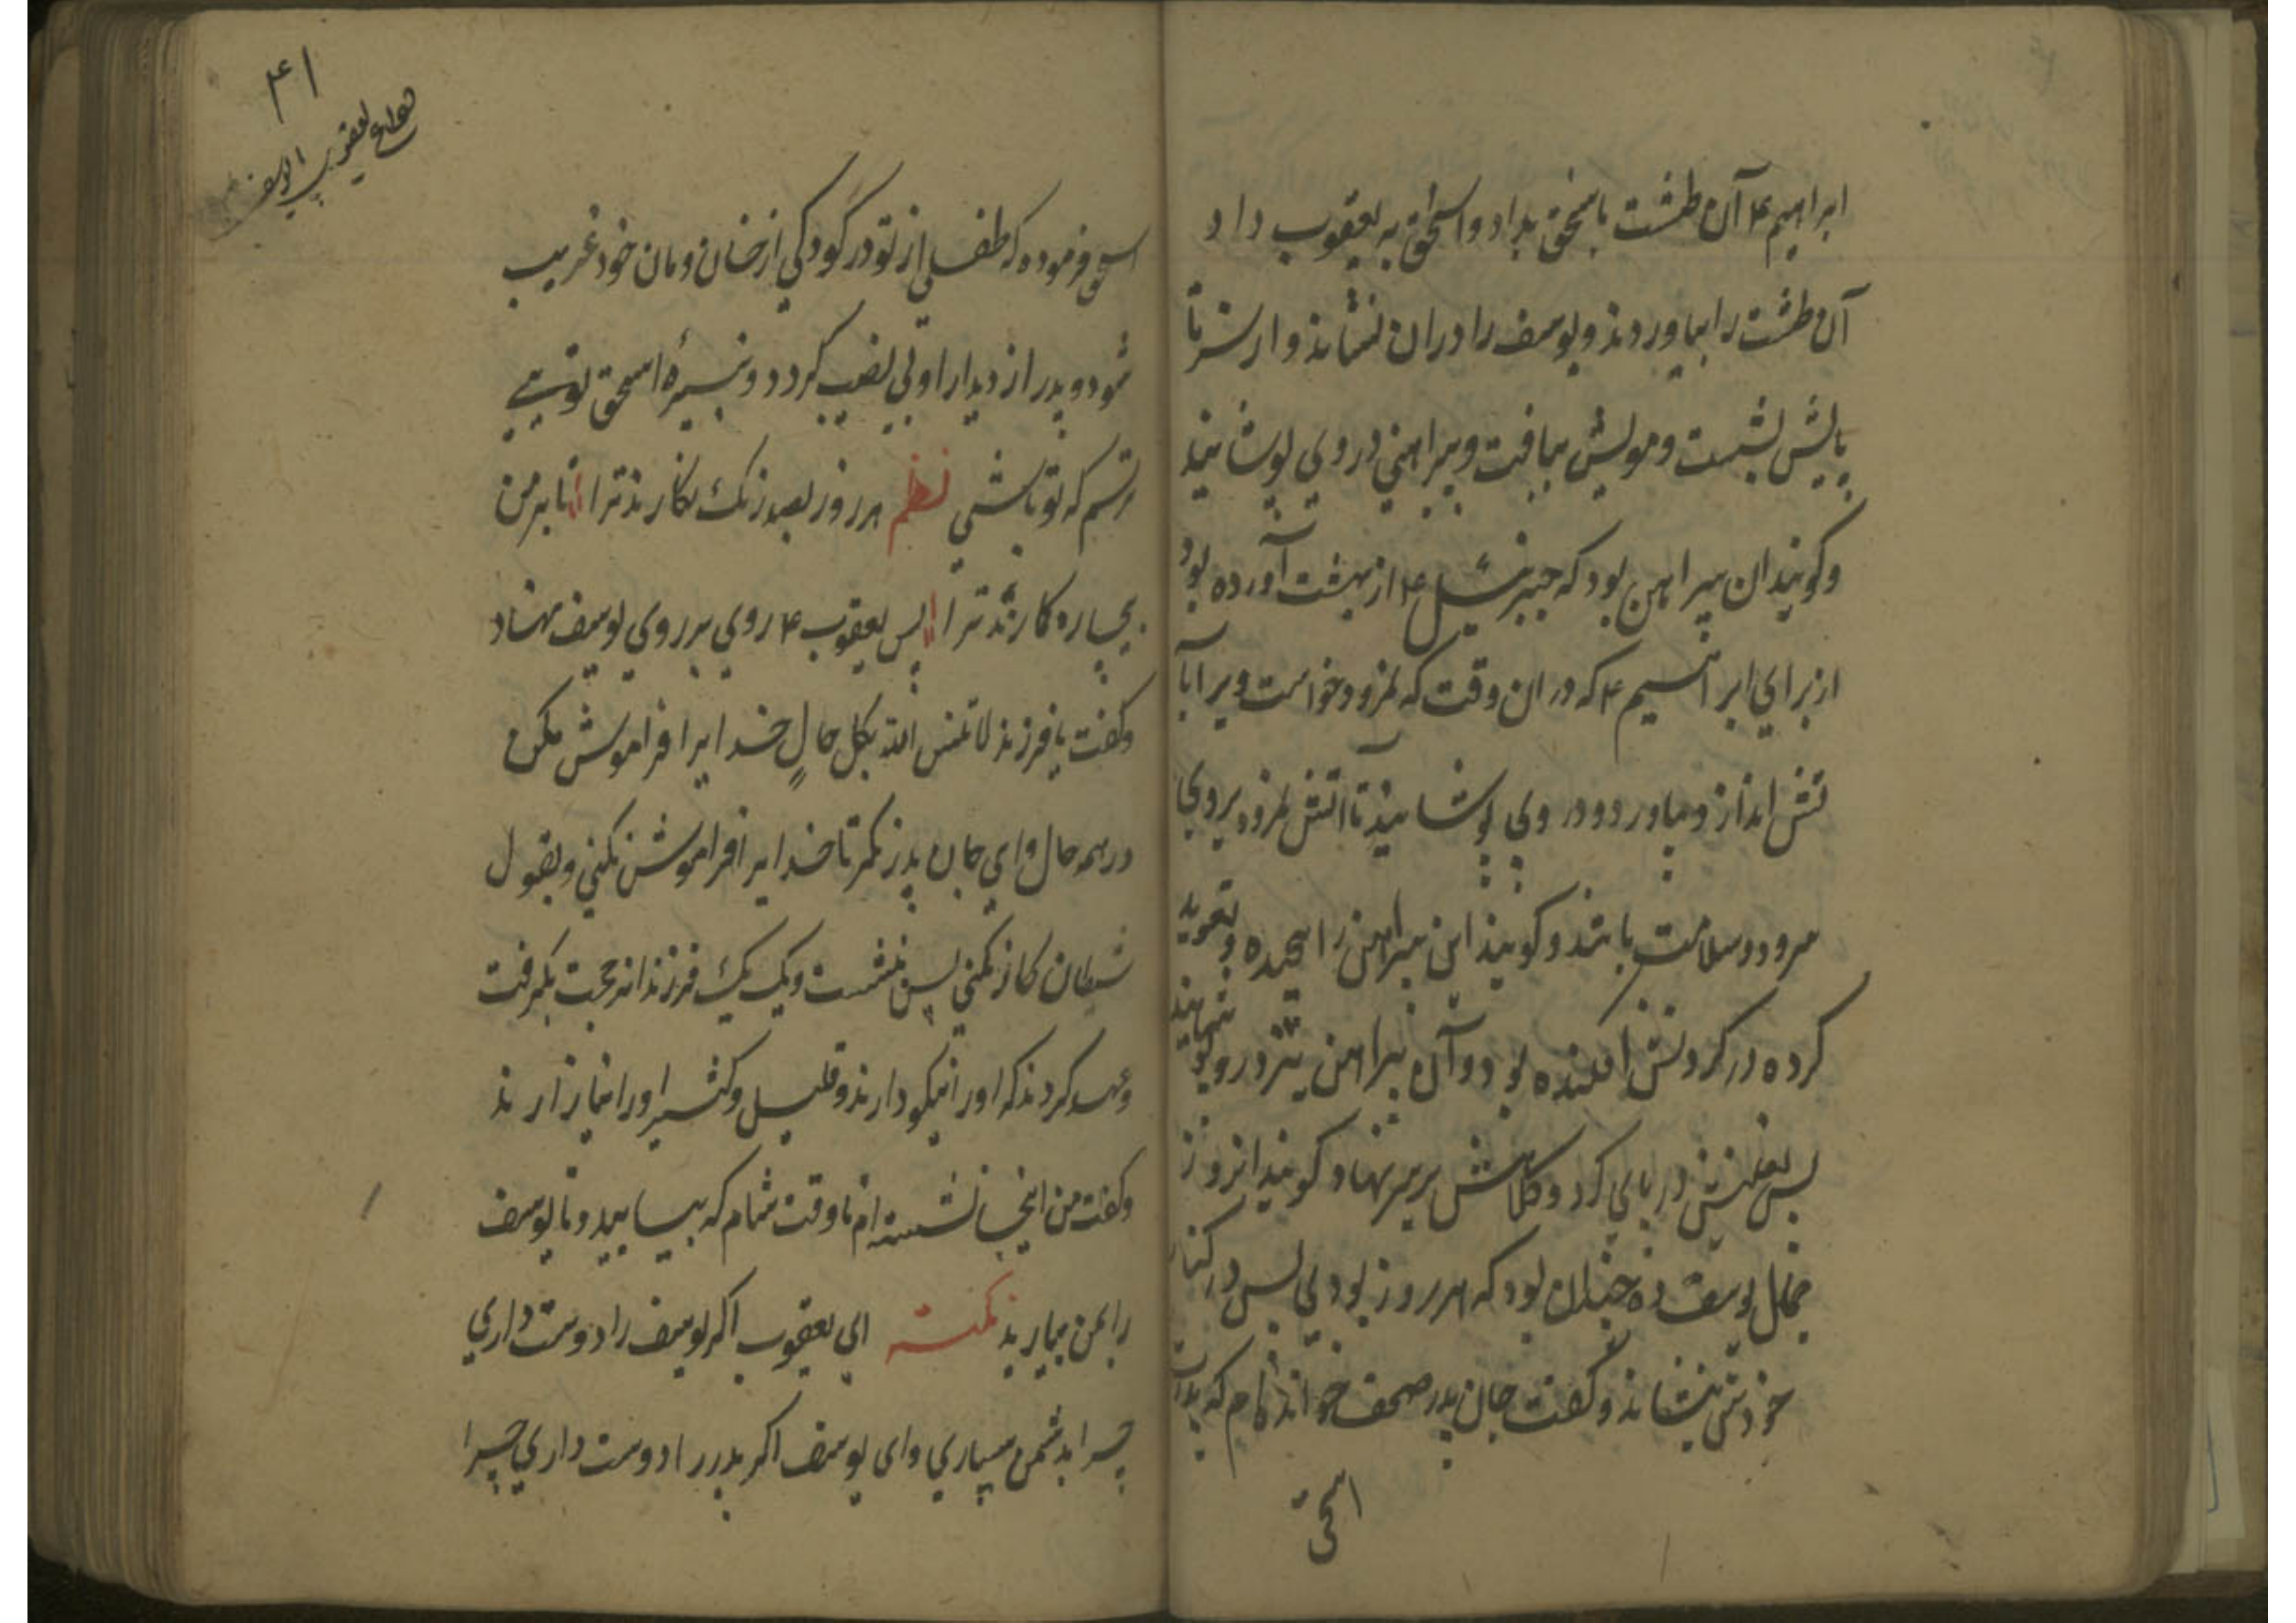 ابراهیم ۴ آن طشت باسحق بداد و اسحق به یعقوب داد
آن طشت را بیاوردند و یوسف را دران نشاند و از سر تا
پایش بشست و مویش ببافت و پیراهنی در وی پوشانید
و کویند ان پیراهن بود که جبرئیل ۴ از بهشت آورده بود
از برای ابراهیم ۴ که در ان وقت که نمرود خواست ویرا باآ
تش اندازد بیاورد و در وی پوشانید تا اتش نمرود بر وی
سرد و سلامت باشد و کویند این پیراهن را پیچیده و تعوید
کرده در کردنش افکنده بود و آن پیراهن نیز در و پوشانید
پس نعلینش در پای کرد و کلاهش بر سر نهاد کویند انروز
جمال یوسف ده چندان بود که هر روز بودی پس در کنار
خودش بنشاند و کفت جان پدر صحف خوانده ام که پدرت
اسحق
۴۱
اسحق فرموده که طفلی از تو در کودکی از خان و مان خود غریب
شود و پدر از دیدار او بی نصیب کردد و نبیرهٔ اسحق تویی
ترسم که تو باشی نظم هر روز بصد رنک نکارند ترا تا بر من
بیچاره کارند ترا پس یعقوب ۴ روی بر روی یوسف نهاد
و کفت یا فرزند لا تنس الله بکل حالٍ خدایرا فراموش مکن
در همه حال و ای جان پدر نکر تا خدایرا فراموش نکنی و بقول
شیطان کار نکنی پس بنشست و یک یک فرزندانرا حجت بکرفت
و عهد کردند که او را نیکو دارند و قلیل و کثیر او را نیازارند
و کفت من اینجا نشسته ام تا وقت شام که بیایید و تا یوسف
را بمن بیارید نکته ای یعقوب اکر یوسف را دوست داری
چرا بدشمن میسپاری و ای یوسف اکر پدر را دوست داری چرا